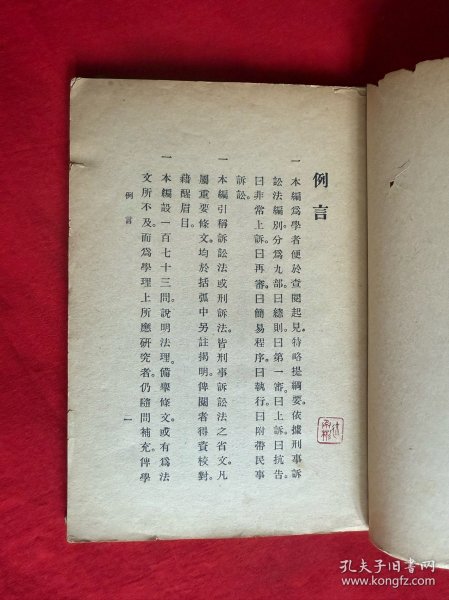 例言
一本編爲學者便於查閱起見。特略提綱要。依據刑事訴
訟法編。別分爲九部。曰總則。曰第一審。曰上訴。曰抗告。
曰非常上訴。曰再審。曰簡易程序。曰執行。曰附帶民事
訴訟。
一本編引稱訴訟法或刑訴法。皆刑事訴訟法之省文。凡
屬重要條文。均於括弧中另註揭明。俾閱者得資校對。
藉醒眉目。
一本編設一百七十三問。說明法理。備舉條文。或有爲法
文所不及。而爲學理上所應研究者。仍隨問補充。俾學
例言
一
孔夫子旧书网
www.kongfz.com